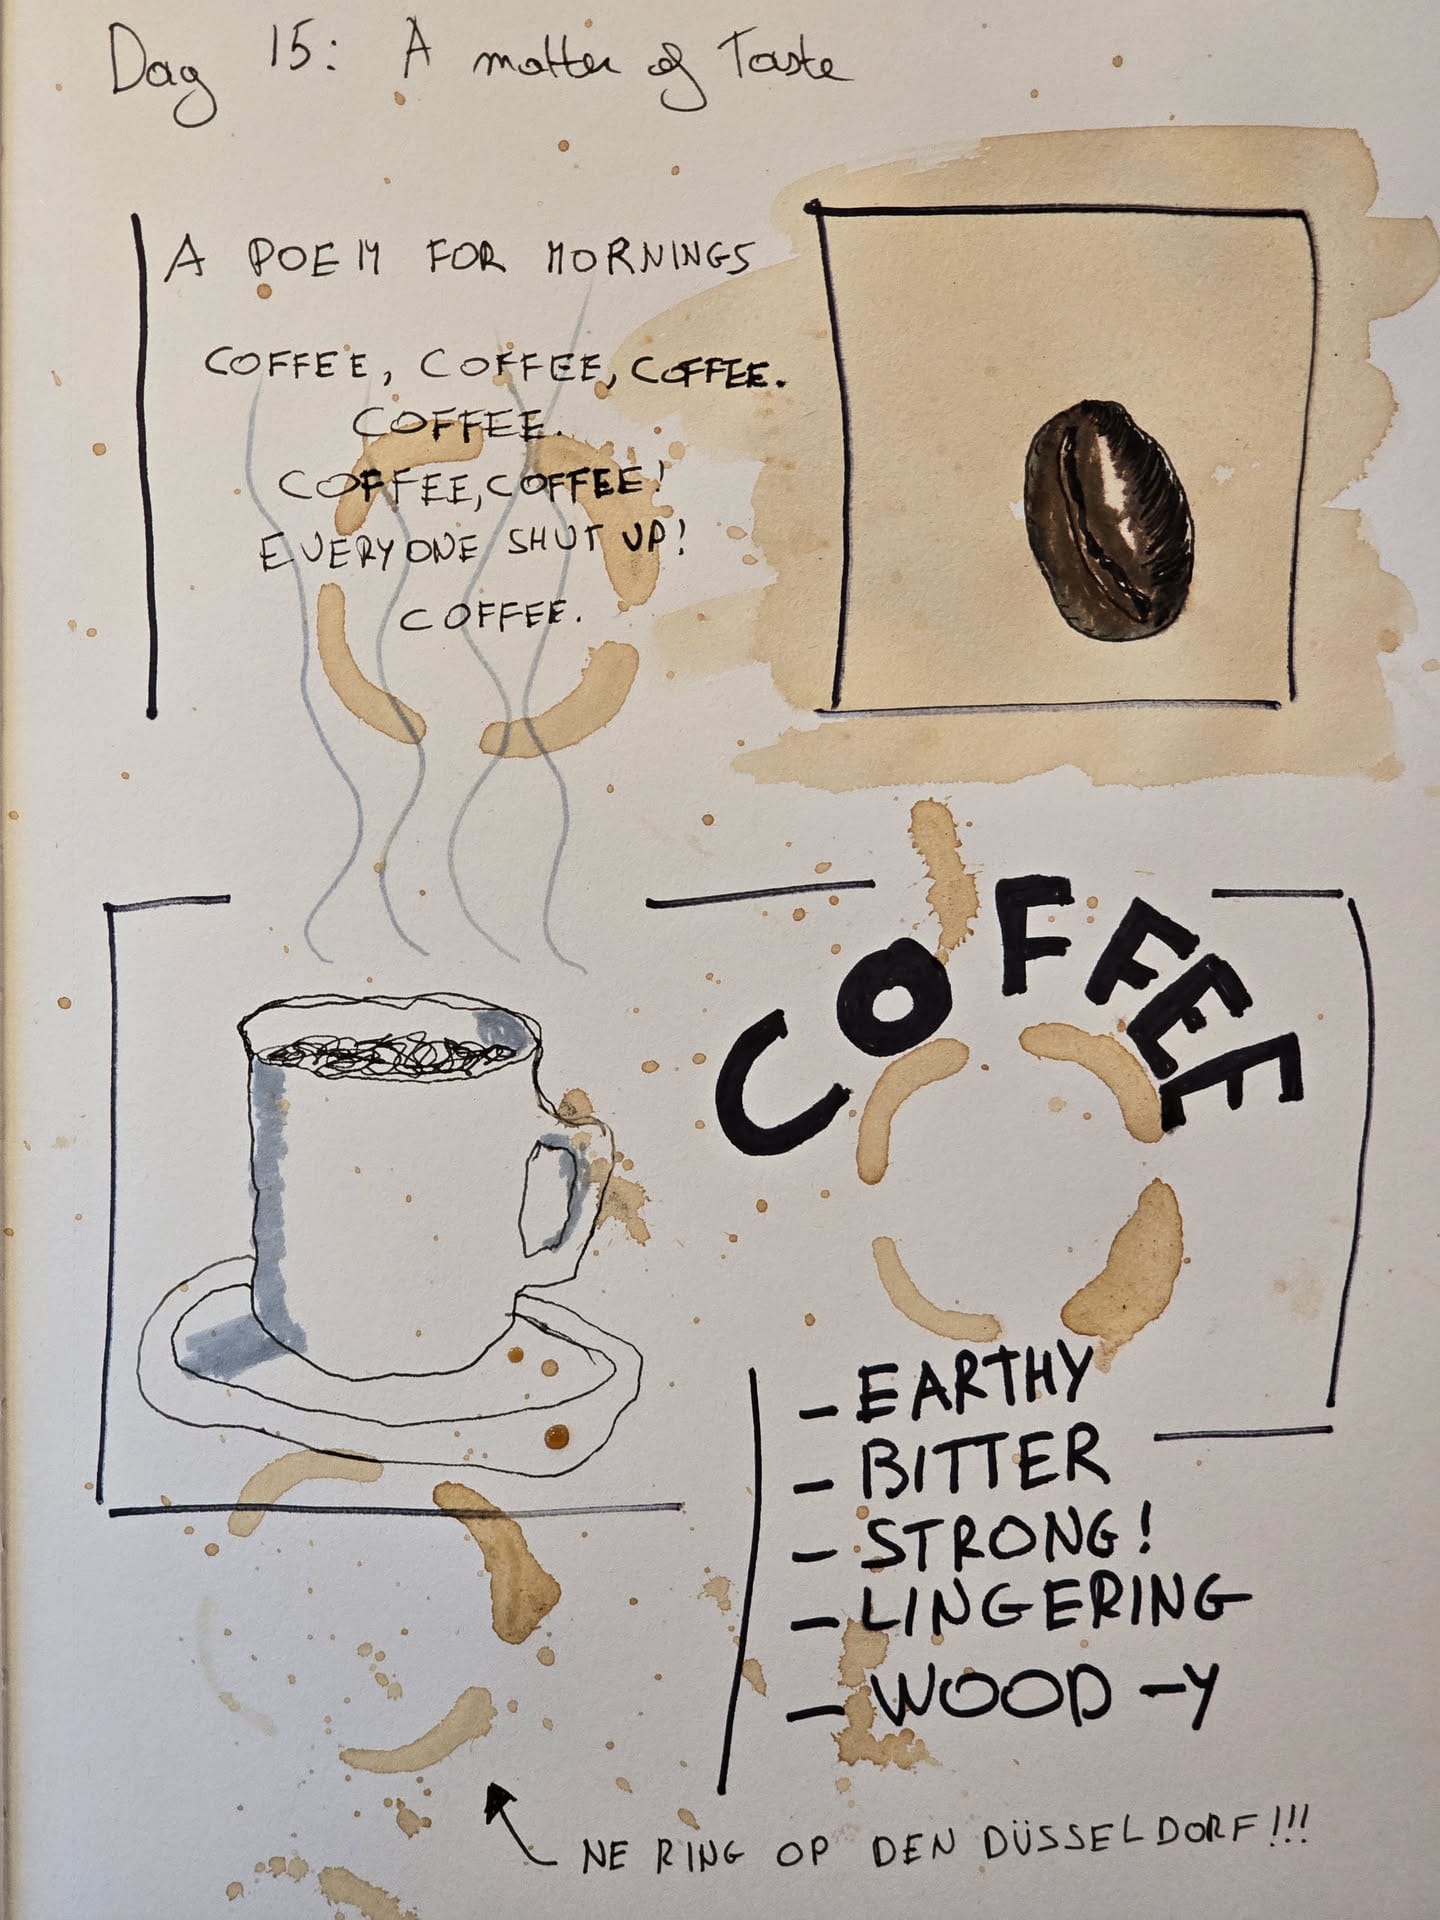 Dag 15: A matter of Taste
A POEM FOR MORNINGS
COFFEE, COFFEE, COFFEE.
COFFEE.
COFFEE, COFFEE!
EVERYONE SHUT UP!
COFFEE.
COFFEE
- EARTHY
- BITTER
- STRONG!
- LINGERING
- WOOD-Y
NE RING OP DEN DÜSSELDORF!!!